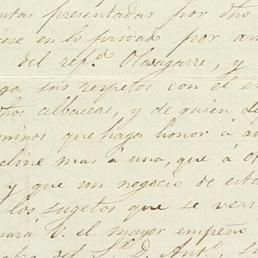 ntas presentadas por dho
iese en lo privado por ar
del refdo. Olavagarre, y
ga sus respetos con el e
hos albaceas, y de quien de
minos que haga honor a a
cline mas à una, que à o
y que un negocio de esta
los sugetos que se vers
nará V. el mayor empeño
del Sr. D. Anto., su